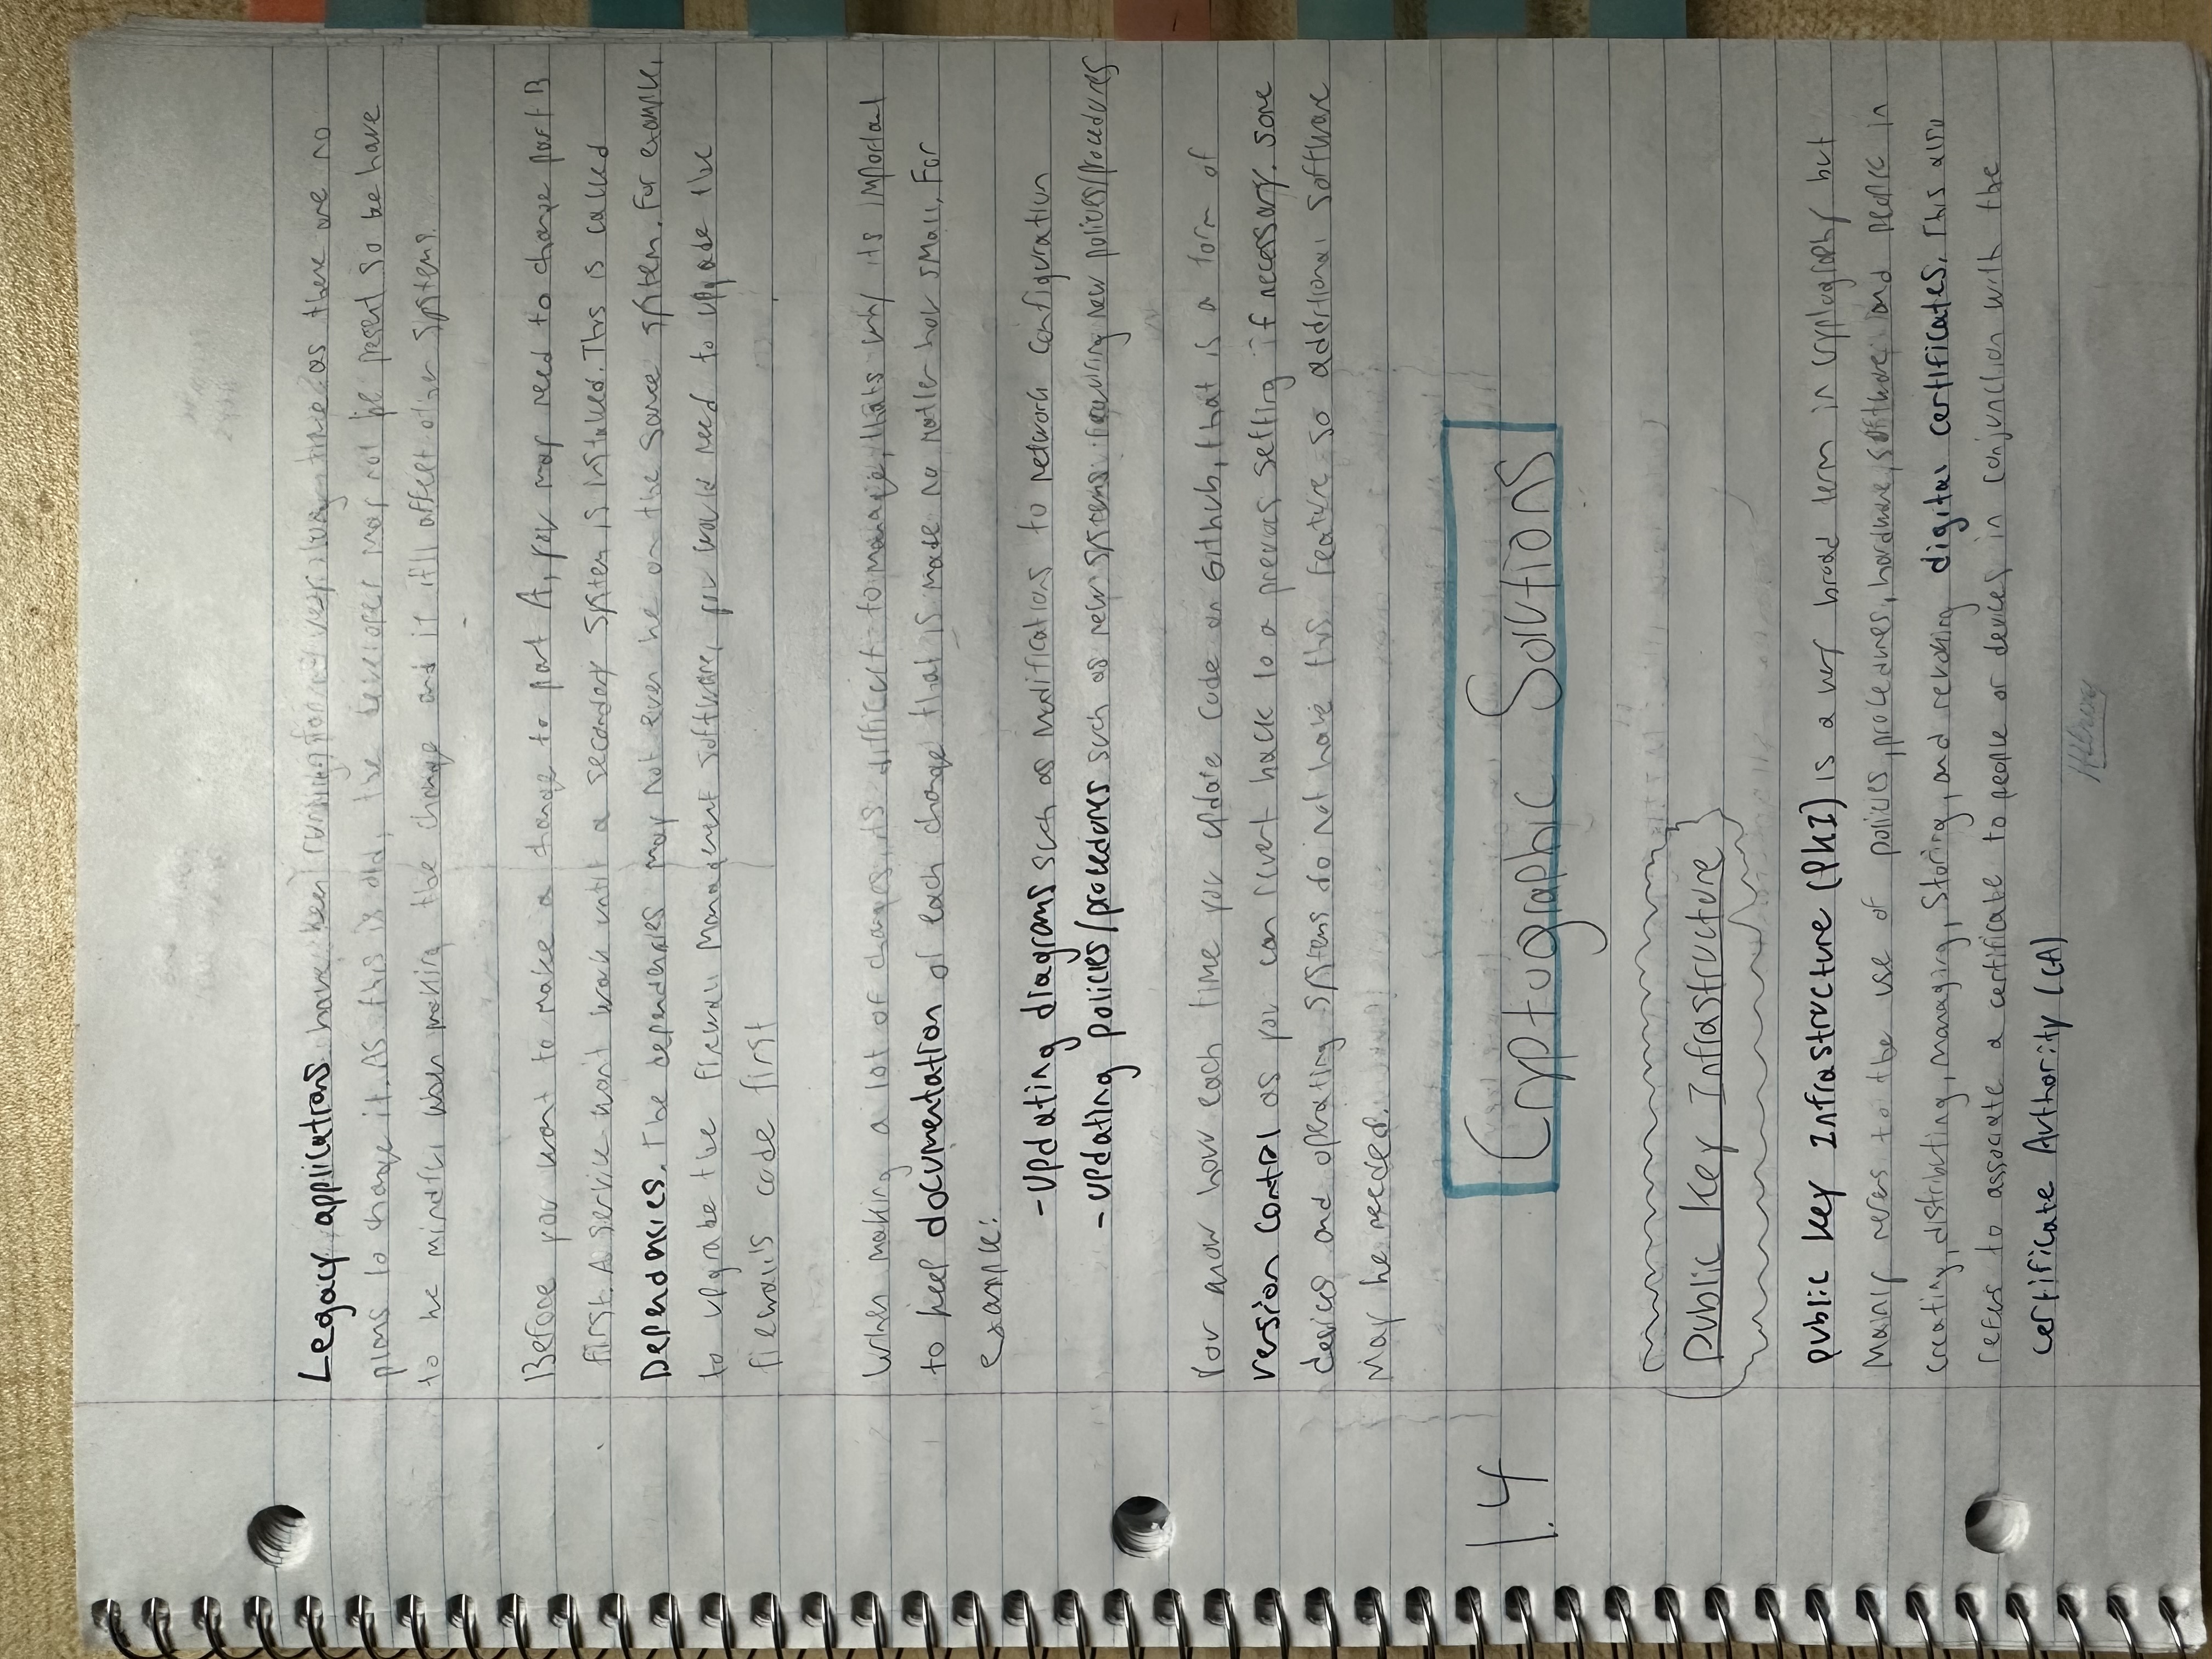 Legacy applications have been running for a very long time as there are no
plans to change it. As this is old, the developer may not be present so be have
to be mindful when making the change and if it'll affect other systems.
Before you want to make a change to part A, you may need to change part B
first. A service won't work until a secondary system is installed. This is called
Dependencies. The dependencies may not even be on the same system. For example,
to upgrade the firewall management software, you would need to upgrade the
firewall's code first
When making a lot of changes, its difficult to manage, thats why its important
to keep documentation of each change that is made no matter how small. For
example:
- Updating diagrams such as modifications to network configuration
- Updating policies/procedures such as new systems requiring new policies/procedures
You know how each time you update code on Github, that is a form of
version control as you can revert back to a previous setting if necessary. Some
devices and operating systems do not have this feature so additional software
may be needed.
1.4 Cryptographic Solutions
Public Key Infrastructure
Public Key Infrastructure (PKI) is a very broad term in cryptography but
mainly refers to the use of policies, procedures, hardware, software and people in
creating, distributing, managing, storing, and revoking digital certificates. This also
refers to associate a certificate to people or devices in conjunction with the
Certificate Authority (CA)
Hilroy